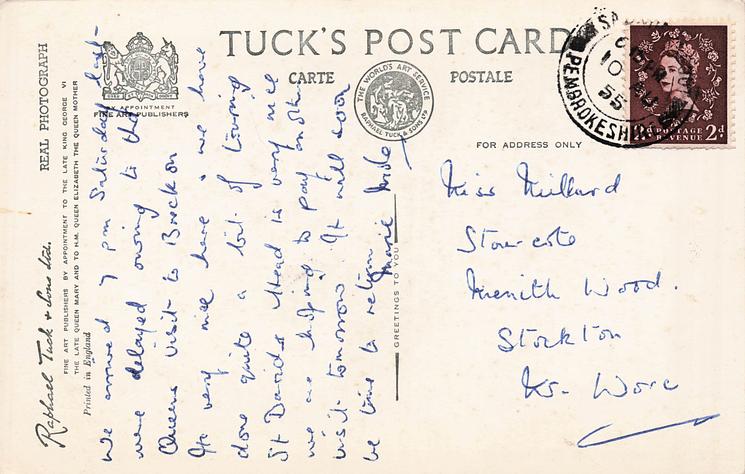 TUCK'S POST CARD
CARTE POSTALE
BY APPOINTMENT
FINE ART PUBLISHERS
THE WORLD'S ART SERVICE
RAPHAEL TUCK & SONS LTD
FOR ADDRESS ONLY
REAL PHOTOGRAPH
Raphael Tuck & Sons Ltd.
FINE ART PUBLISHERS BY APPOINTMENT TO THE LATE KING GEORGE VI
THE LATE QUEEN MARY AND TO H.M. QUEEN ELIZABETH THE QUEEN MOTHER
Printed in England
We arrived 7 pm Saturday last
were delayed owing to the
Queens visit to Brecon
Its very nice here & we have
done quite a bit of touring
St Davids Head is very nice
we are hoping to pay another
visit tomorrow. It will soon
be time to return
GREETINGS TO YOU
Miss Millard
Stourcote
Menith Wood.
Stockton
Nr. Worc
10
55
PEMBROKESHIRE
2d POSTAGE REVENUE 2d